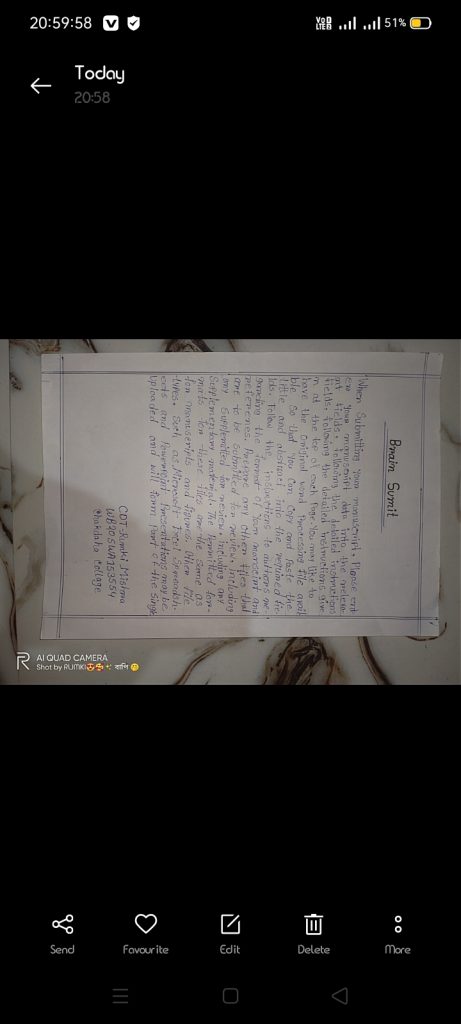 20:59:58
Vo
LTE 2
51%
Today
20:58
Brain Sumit
"When Submitting your manuscript, Please ent-
er your manuscript data into the releva-
nt fields, following the detailed instructions
fields, following the detailed instructions give
n at the top of each page. You may like to
have the original word Processing file availa
ble so that you can copy and paste the
title and abstract into the required fie
lds. Follow the instructions to authors re-
garding the format of your manuscript and
references. Prepare any other files that
are to be submitted for review, including
any supplementary material. The permitted for-
mats for these files are the same as
for manuscripts and figures. Other file
types, such as Microsoft Excel Spreadsh-
eets and Powerpoint Presentations may be
uploaded and will form part of the single
CDT-Rumki Mishra
WB20SWA153554
Chandrakona College
AI QUAD CAMERA
Shot by RUMKI😍🥰✨ বাপি 🤭
Send
Favourite
Edit
Delete
More